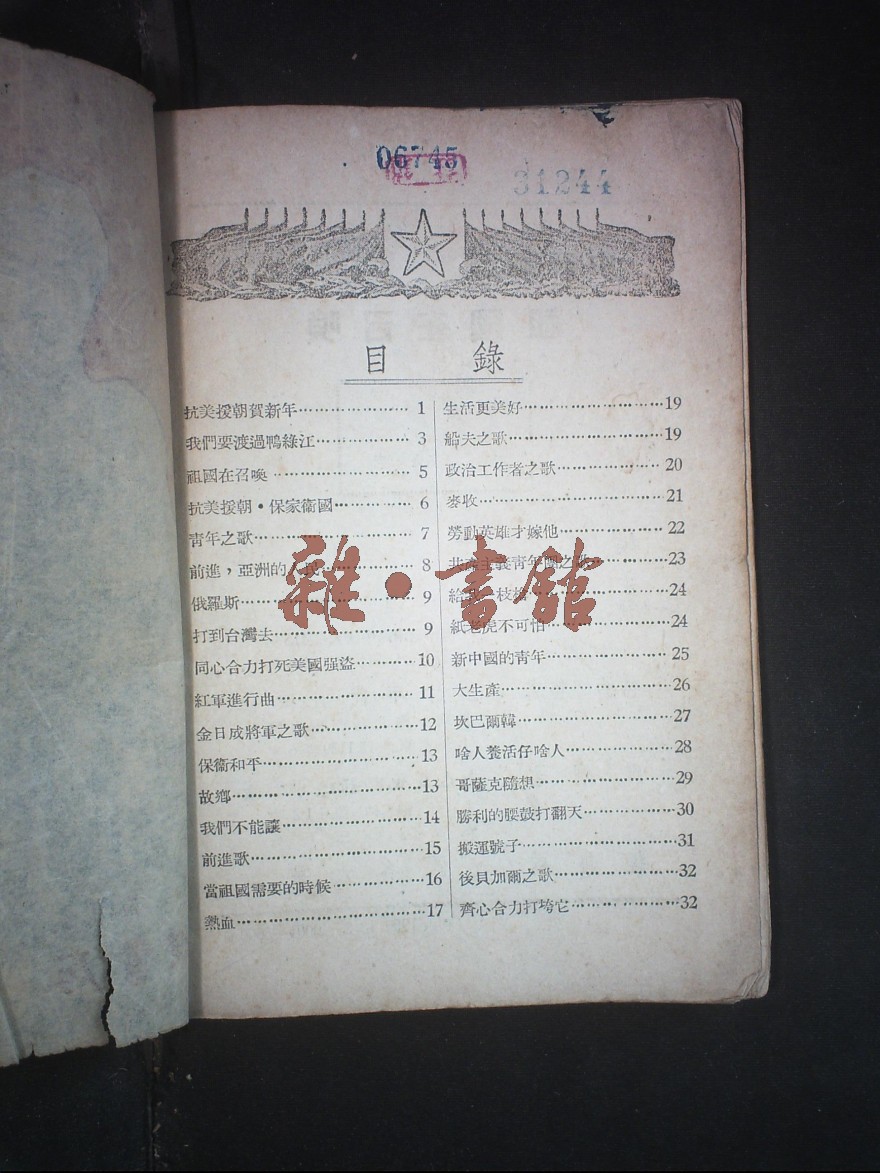 06745
31244
目 錄
抗美援朝賀新年…………………1
我們要渡過鴨綠江………………3
祖國在召喚………………………5
抗美援朝·保家衞國……………6
青年之歌…………………………7
前進，亞洲的人民………………8
俄羅斯……………………………9
打到台灣去………………………9
同心合力打死美國强盜…………10
紅軍進行曲………………………11
金日成將軍之歌…………………12
保衞和平…………………………13
故鄉………………………………13
我們不能讓………………………14
前進歌……………………………15
當祖國需要的時候………………16
熱血………………………………17
生活更美好………………………19
船夫之歌…………………………19
政治工作者之歌…………………20
麥收………………………………21
勞動英雄才嫁他…………………22
共產主義青年團之歌……………23
給我一枝槍………………………24
紙老虎不可怕……………………24
新中國的青年……………………25
大生產……………………………26
坎巴爾韓…………………………27
啥人養活仔啥人…………………28
哥薩克隨想………………………29
勝利的腰鼓打翻天………………30
搬運號子…………………………31
後貝加爾之歌……………………32
齊心合力打垮它…………………32
雜·書館